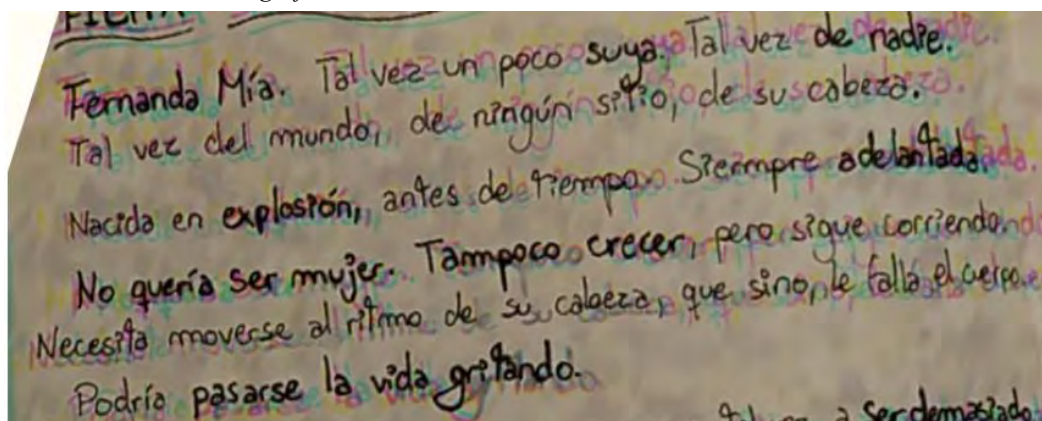 Fernanda Mía. Tal vez un poco suya. Tal vez de nadie.
Tal vez del mundo, de ningún sitio, de su cabeza.
Nacida en explosión, antes de tiempo. Siempre adelantada.
No quería ser mujer. Tampoco crecer, pero sigue corriendo.
Necesita moverse al ritmo de su cabeza, que sino, le falla el cuerpo.
Podría pasarse la vida gritando.
a ser demasiado